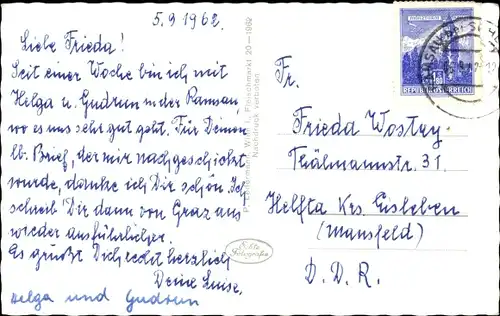 5.9.1962.
Liebe Frieda!
Seit einer Woche bin ich mit
Helga u. Gudrun in der Ramsau,
wo es uns sehr gut geht. Für Deinen
lb. Brief, der mir nachgeschickt
wurde, danke ich Dir schön. Ich
schreib Dir dann von Graz aus
wieder ausführlicher.
Es grüßt Dich recht herzlich
Deine Luise.
Helga und Gudrun
Wien I., Fleischmarkt 20 — 1962
Nachdruck verboten
Echte
Fotografie
REPUBLIK ÖSTERREICH
Fr.
Frieda Wostry
Thälmannstr. 31
Helfta Krs. Eisleben
(Mansfeld)
D. D. R.